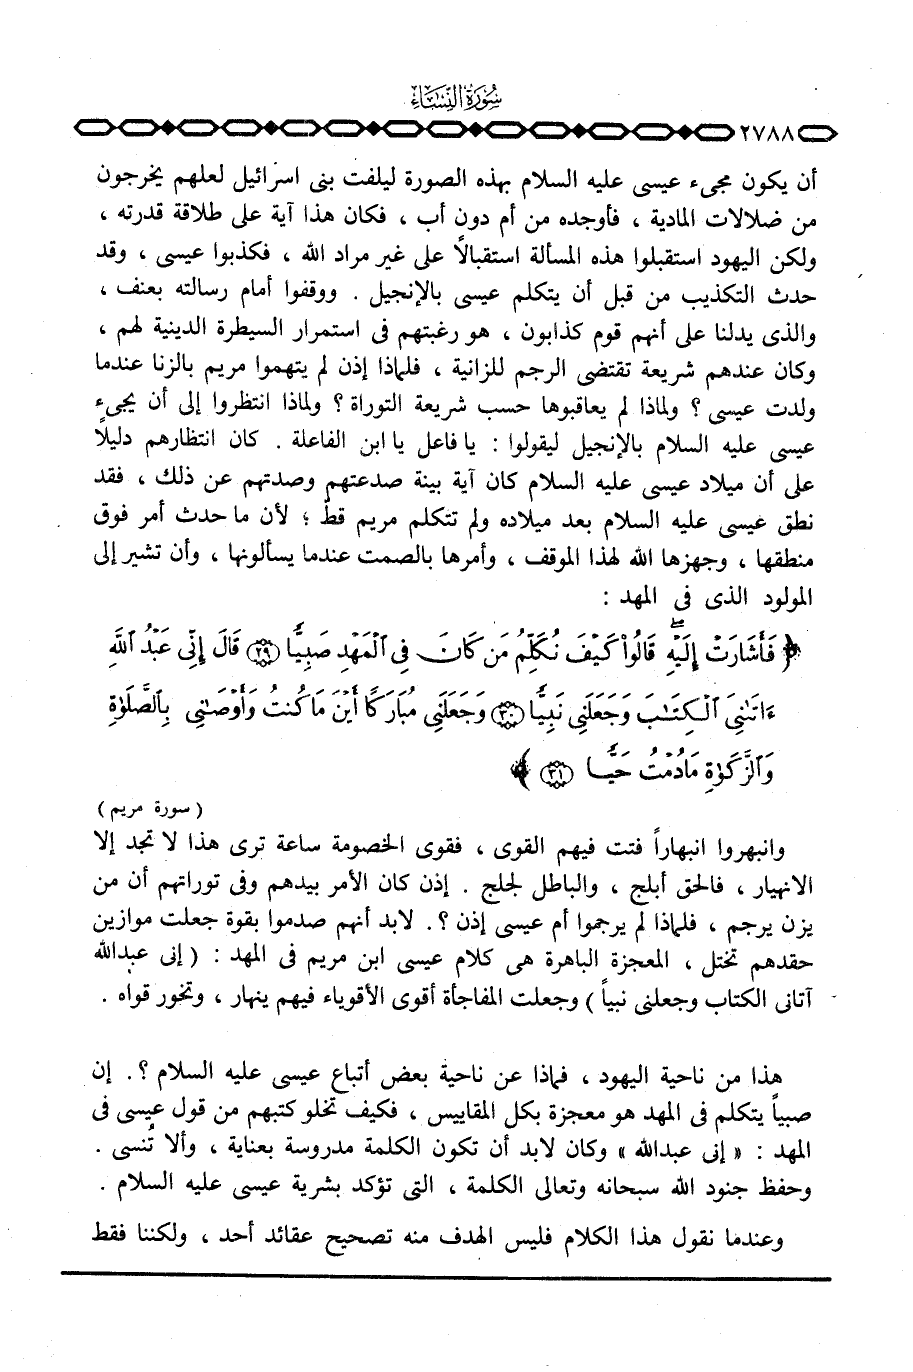 سُورَةُ النِّسَاء
٢٧٨٨
أن يكون مجىء عيسى عليه السلام بهذه الصورة ليلفت بنى اسرائيل لعلهم يخرجون
من ضلالات المادية ، فأوجده من أم دون أب ، فكان هذا آية على طلاقة قدرته ،
ولكن اليهود استقبلوا هذه المسألة استقبالاً على غير مراد الله ، فكذبوا عيسى ، وقد
حدث التكذيب من قبل أن يتكلم عيسى بالإنجيل . ووقفوا أمام رسالته بعنف ،
والذى يدلنا على أنهم قوم كذابون ، هو رغبتهم فى استمرار السيطرة الدينية لهم ،
وكان عندهم شريعة تقتضى الرجم للزانية ، فلماذا إذن لم يتهموا مريم بالزنا عندما
ولدت عيسى ؟ ولماذا لم يعاقبوها حسب شريعة التوراة ؟ ولماذا انتظروا إلى أن يجىء
عيسى عليه السلام بالإنجيل ليقولوا : يا فاعل يا ابن الفاعلة . كان انتظارهم دليلاً
على أن ميلاد عيسى عليه السلام كان آية بينة صدعتهم وصدتهم عن ذلك ، فقد
نطق عيسى عليه السلام بعد ميلاده ولم تتكلم مريم قطّ ؛ لأن ما حدث أمر فوق
منطقها ، وجهزها الله لهذا الموقف ، وأمرها بالصمت عندما يسألونها ، وأن تشير إلى
المولود الذى فى المهد :
﴿ فَأَشَارَتْ إِلَيْهِ ۖ قَالُوا۟ كَيْفَ نُكَلِّمُ مَن كَانَ فِى ٱلْمَهْدِ صَبِيًّۭا ۝٢٩ قَالَ إِنِّى عَبْدُ ٱللَّهِ
ءَاتَىٰنِىَ ٱلْكِتَـٰبَ وَجَعَلَنِى نَبِيًّۭا ۝٣٠ وَجَعَلَنِى مُبَارَكًا أَيْنَ مَا كُنتُ وَأَوْصَـٰنِى بِٱلصَّلَوٰةِ
وَٱلزَّكَوٰةِ مَا دُمْتُ حَيًّۭا ۝٣١ ﴾
( سورة مريم )
وانبهروا انبهاراً فتت فيهم القوى ، فقوى الخصومة ساعة ترى هذا لا تجد إلا
الانهيار ، فالحق أبلج ، والباطل لجلج . إذن كان الأمر بيدهم وفى توراتهم أن من
يزن يرجم ، فلماذا لم يرجموا أم عيسى إذن ؟. لابد أنهم صدموا بقوة جعلت موازين
حقدهم تختل ، المعجزة الباهرة هى كلام عيسى ابن مريم فى المهد : ( إنى عبدالله
آتانى الكتاب وجعلنى نبياً ) وجعلت المفاجأة أقوى الأقوياء فيهم ينهار ، وتخور قواه .
هذا من ناحية اليهود ، فماذا عن ناحية بعض أتباع عيسى عليه السلام ؟. إن
صبياً يتكلم فى المهد هو معجزة بكل المقاييس ، فكيف تخلو كتبهم من قول عيسى فى
المهد : « إنى عبدالله » وكان لابد أن تكون الكلمة مدروسة بعناية ، وألا تُنسى .
وحفظ جنود الله سبحانه وتعالى الكلمة ، التى تؤكد بشرية عيسى عليه السلام .
وعندما نقول هذا الكلام فليس الهدف منه تصحيح عقائد أحد ، ولكننا فقط